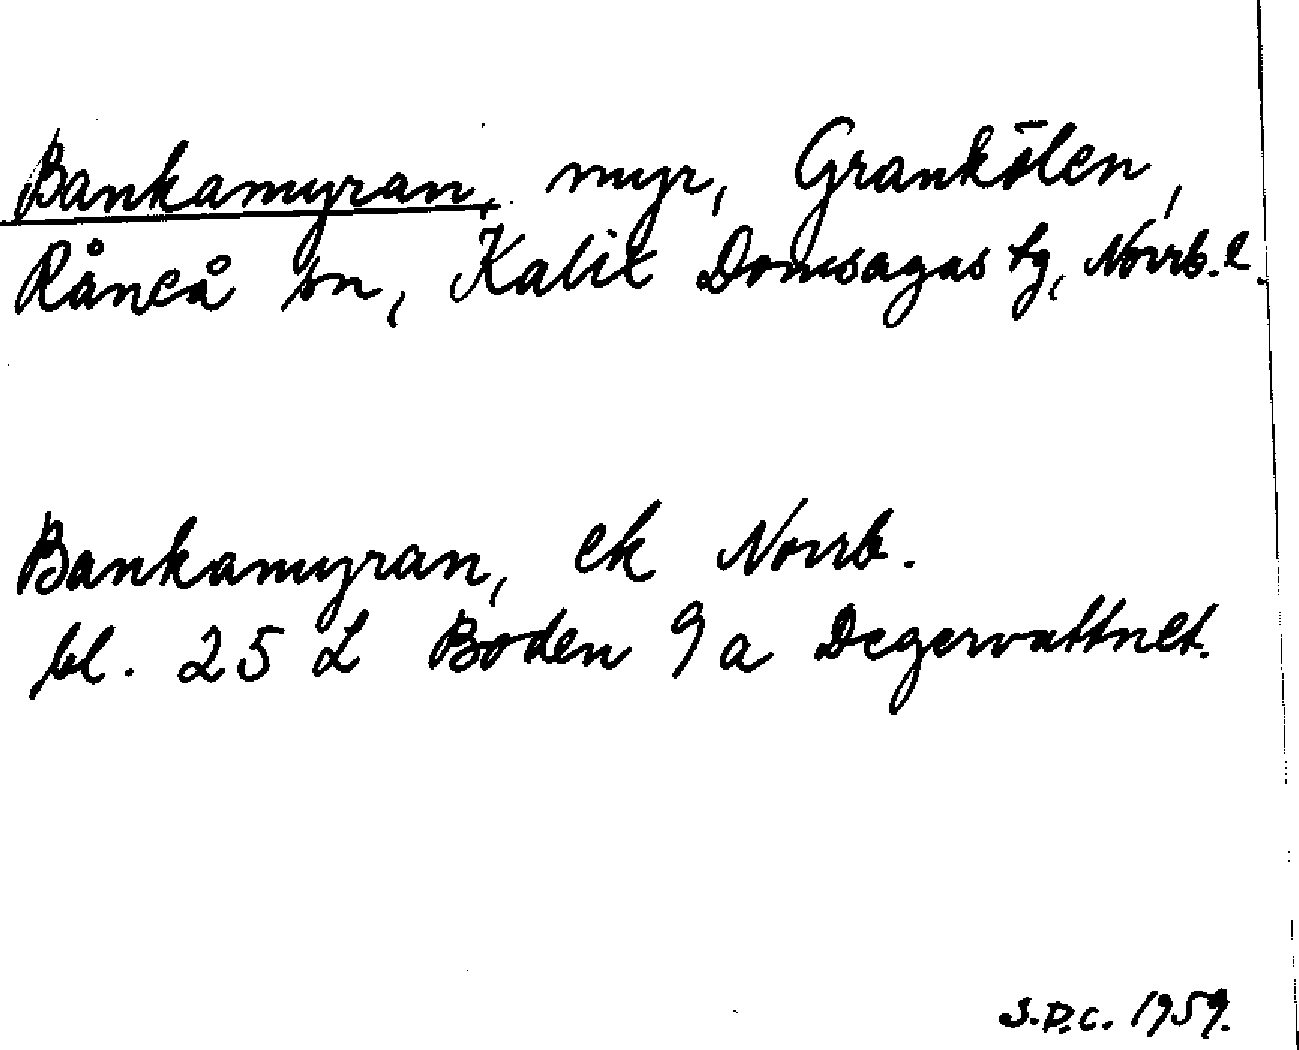 Bankamyran, myr, Grankölen,
Råneå sn, Kalix Domsagas tg, Norrb. l.
Bankamyran, ek Norrb.
bl. 25 L Boden 9 a Degervattnet.
S.D.C. 1959.